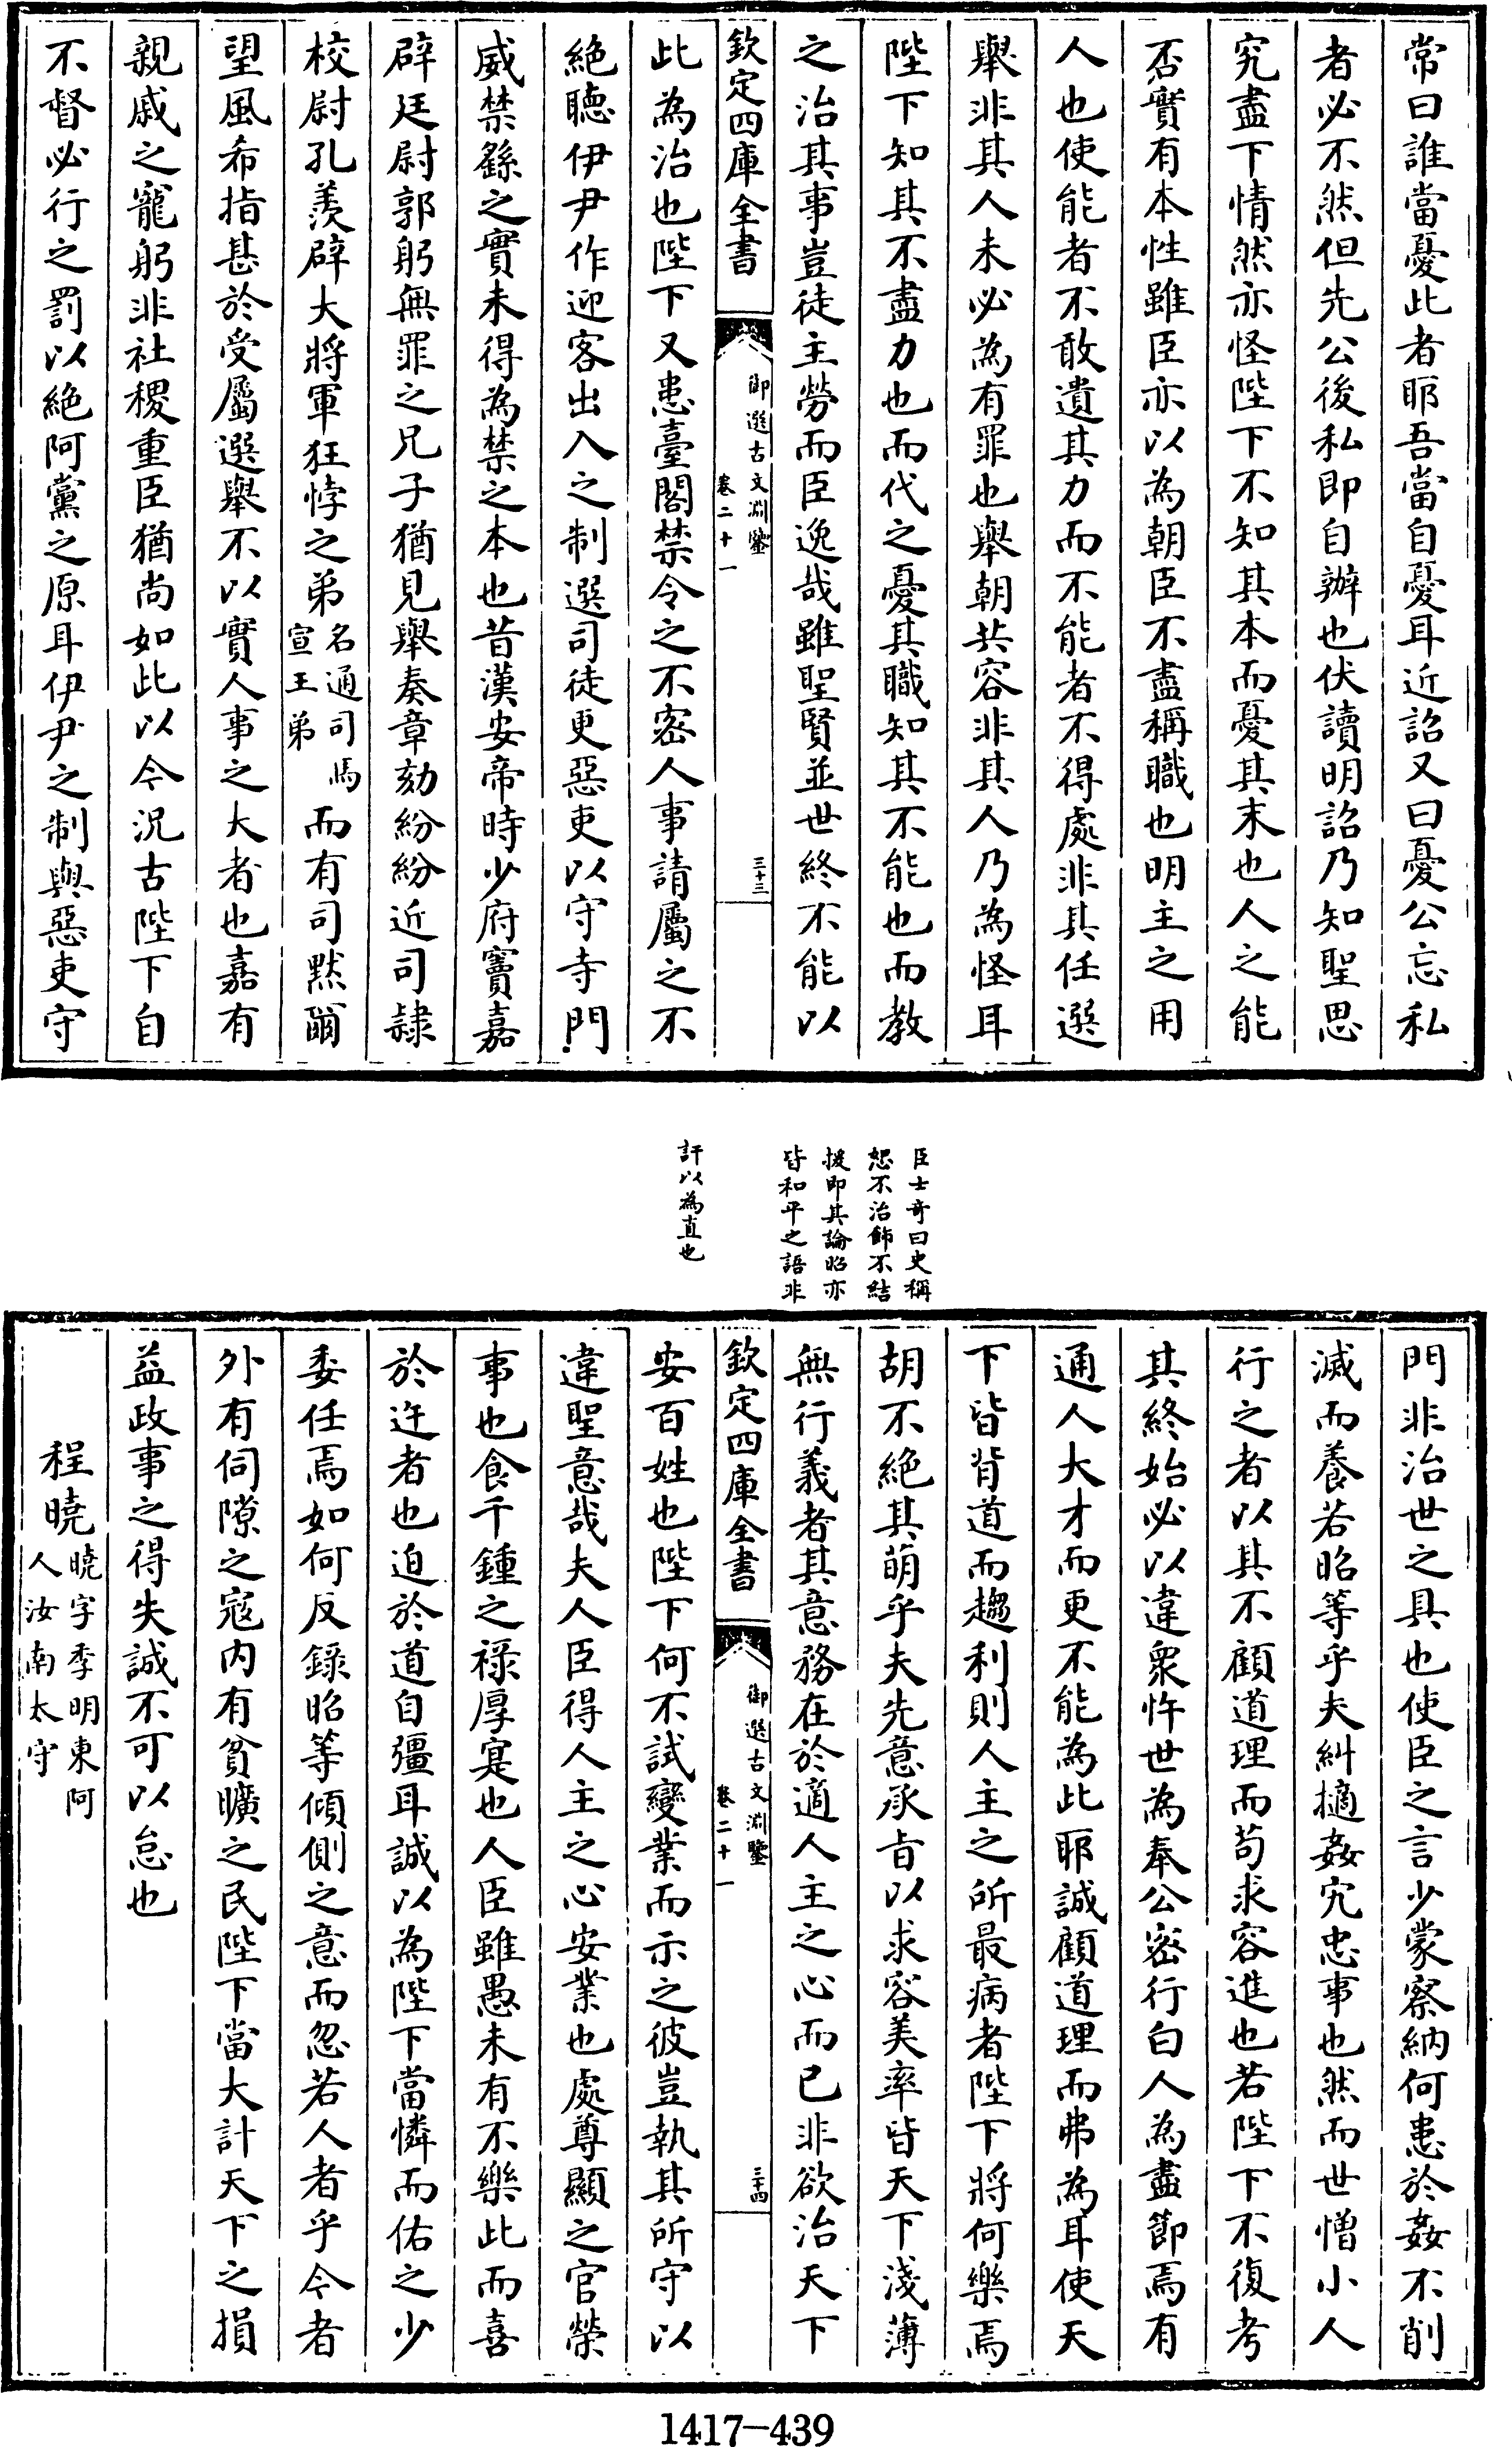 常曰誰當憂此者耶吾當自憂耳近詔又曰憂公忘私
者必不然但先公後私即自辦也伏讀明詔乃知聖思
究盡下情然亦怪陛下不知其本而憂其末也人之能
否實有本性雖臣亦以為朝臣不盡稱職也明主之用
人也使能者不敢遺其力而不能者不得處非其任選
舉非其人未必為有罪也舉朝共容非其人乃為怪耳
陛下知其不盡力也而代之憂其職知其不能也而教
之治其事豈徒主勞而臣逸哉雖聖賢並世終不能以
欽定四庫全書
御選古文淵鑒
卷二十一
三十三
此為治也陛下又患臺閣禁令之不密人事請屬之不
絕聽伊尹作迎客出入之制選司徒更惡吏以守寺門
威禁繇之實未得為禁之本也昔漢安帝時少府竇嘉
辟廷尉郭躬無罪之兄子猶見舉奏章劾紛紛近司隸
校尉孔羨辟大將軍狂悖之弟名通司馬宣王弟而有司默爾
望風希指甚於受屬選舉不以實人事之大者也嘉有
親戚之寵躬非社稷重臣猶尚如此以今況古陛下自
不督必行之罰以絕阿黨之原耳伊尹之制與惡吏守
臣士奇曰史稱
恕不治飾不結
援即其論昭亦
皆和平之語非
訐以為直也
門非治世之具也使臣之言少蒙察納何患於姦不削
滅而養若昭等乎夫糾擿姦宄忠事也然而世憎小人
行之者以其不顧道理而苟求容進也若陛下不復考
其終始必以違衆忤世為奉公密行白人為盡節焉有
通人大才而更不能為此耶誠顧道理而弗為耳使天
下皆背道而趨利則人主之所最病者陛下將何樂焉
胡不絕其萌乎夫先意承旨以求容美率皆天下淺薄
無行義者其意務在於適人主之心而已非欲治天下
欽定四庫全書
御選古文淵鑒
卷二十一
三十四
安百姓也陛下何不試變業而示之彼豈執其所守以
違聖意哉夫人臣得人主之心安業也處尊顯之官榮
事也食千鍾之祿厚寔也人臣雖愚未有不樂此而喜
於迕者也迫於道自彊耳誠以為陛下當憐而佑之少
委任焉如何反錄昭等傾側之意而忽若人者乎今者
外有伺隙之寇内有貧曠之民陛下當大計天下之損
益政事之得失誠不可以怠也
程曉曉字季明東阿人汝南太守
1417-439